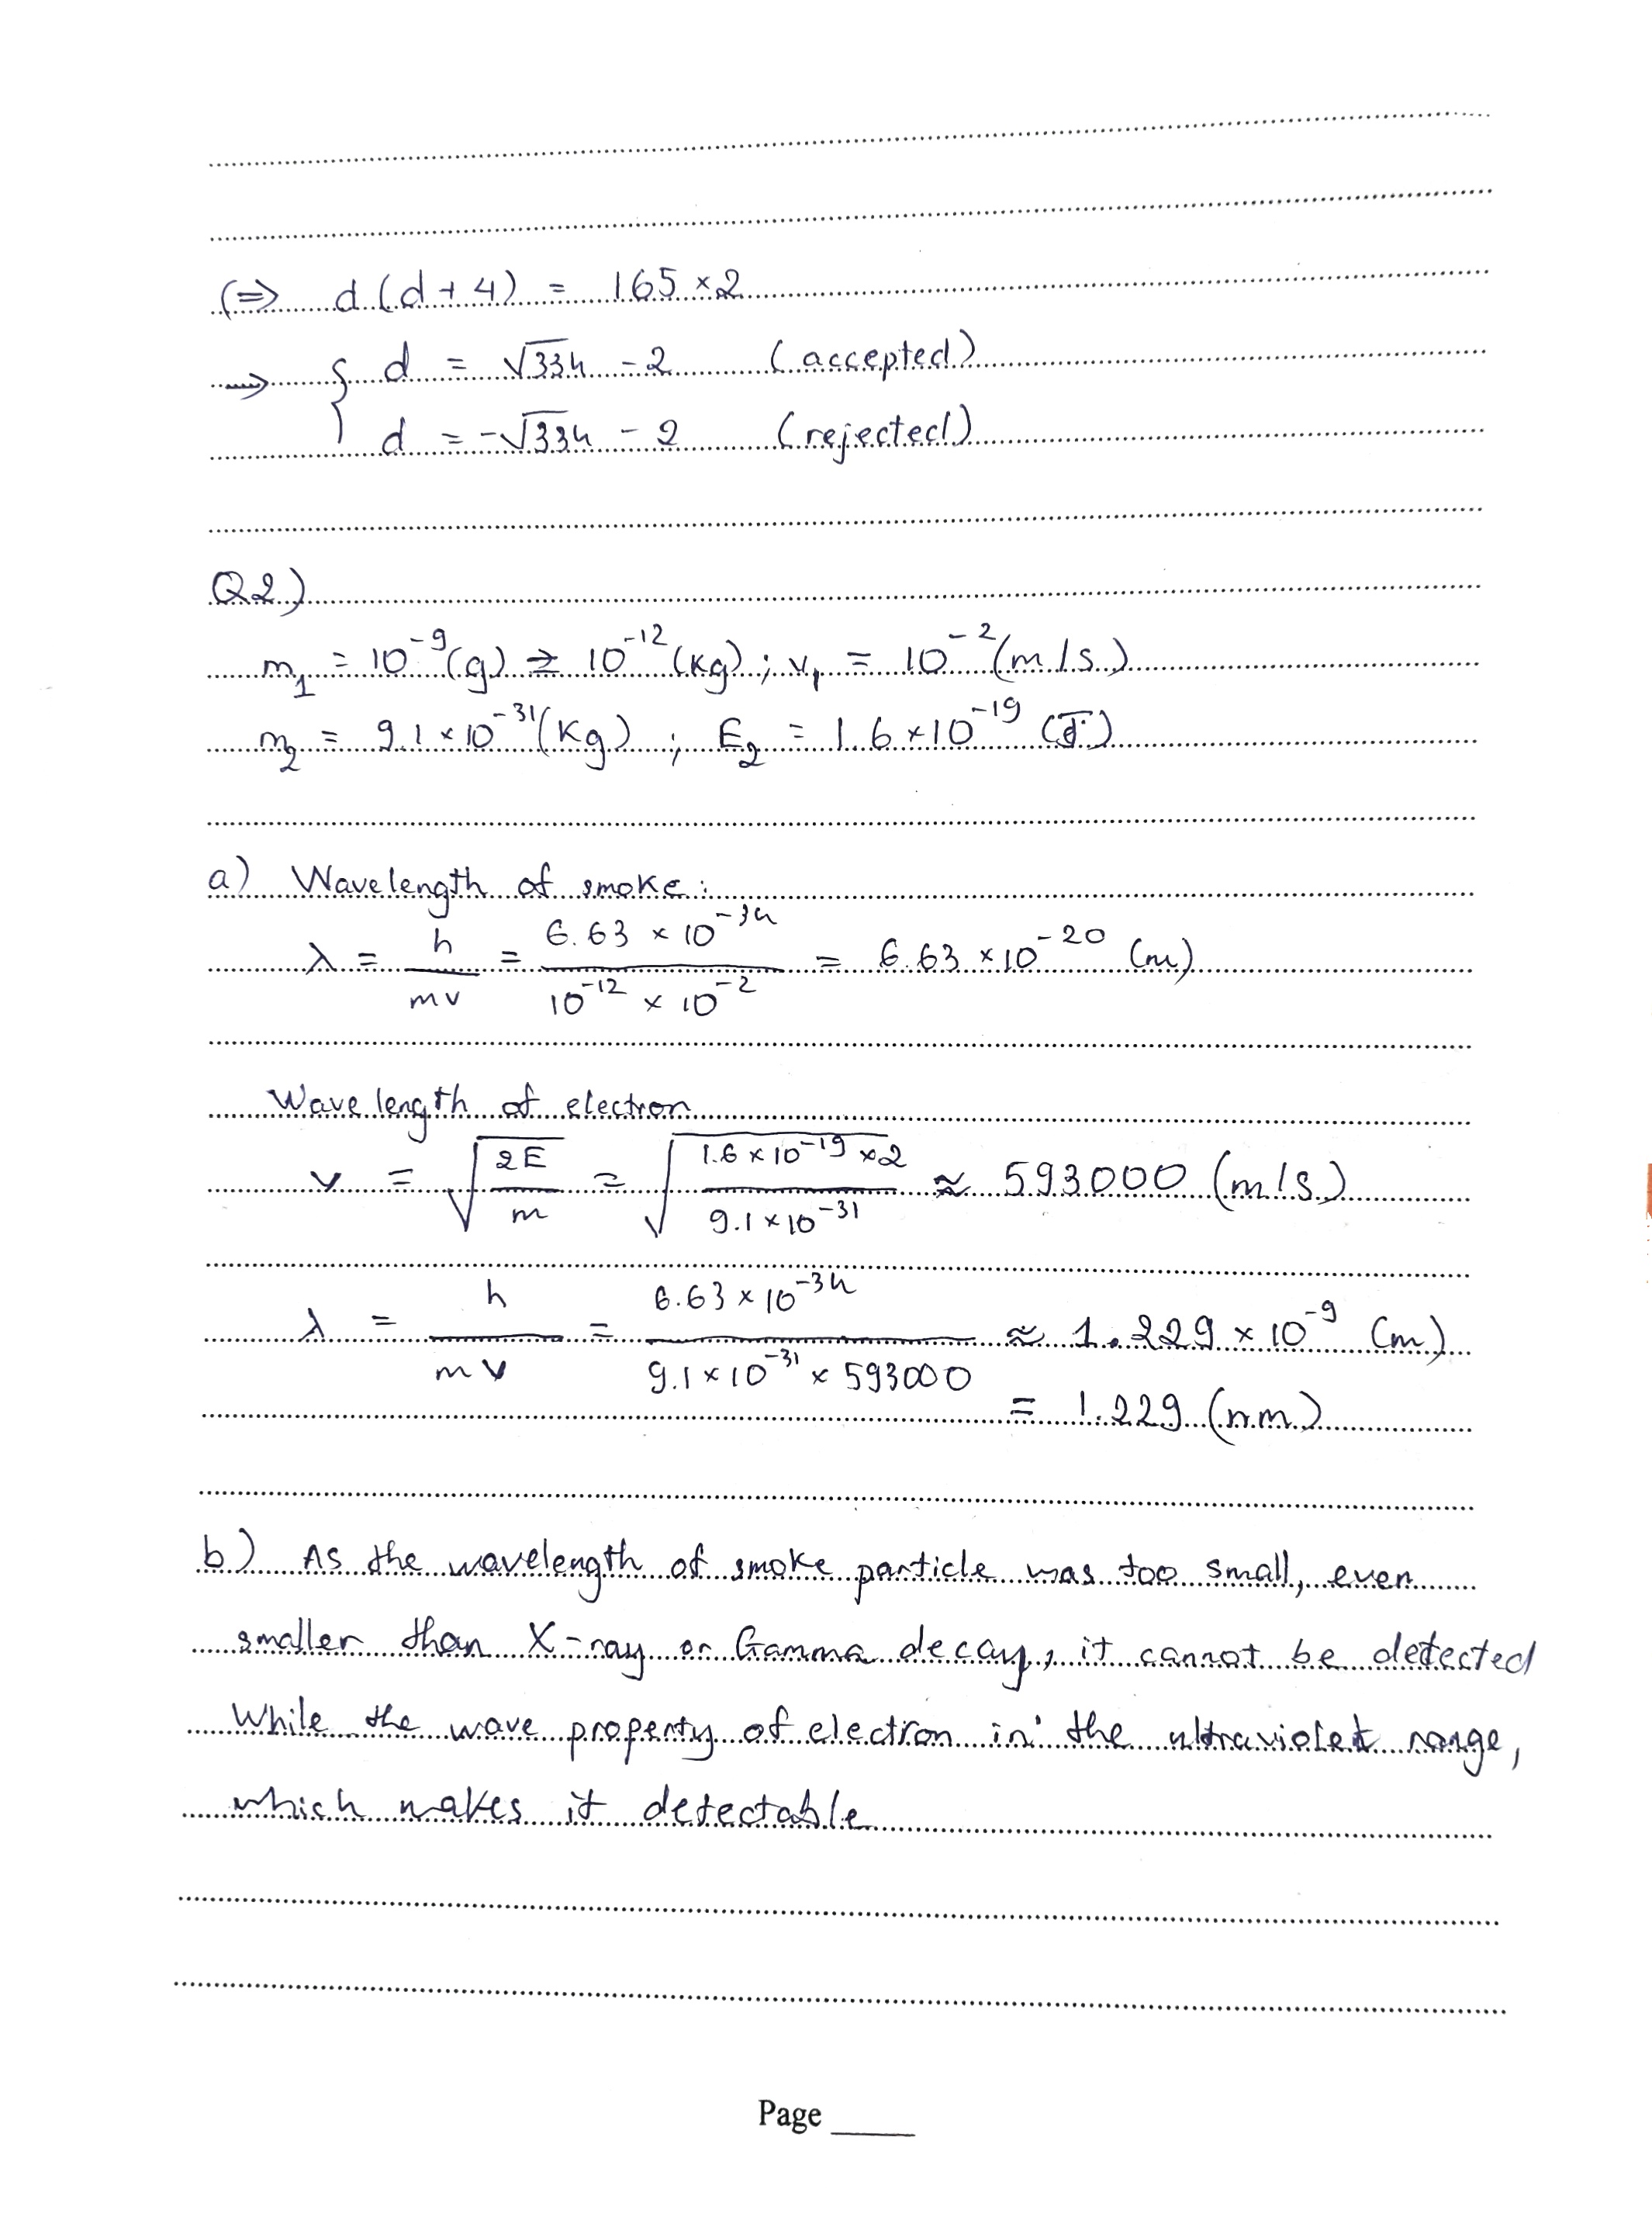 (⇒ d(d+4) = 165×2
⟹ { d = √334 - 2 (accepted)
d = -√334 - 2 (rejected)
Q2)
m₁ = 10⁻⁹(g) → 10⁻¹²(kg) ; v₁ = 10⁻²(m/s)
m₂ = 9.1×10⁻³¹(Kg) ; E₂ = 1.6×10⁻¹⁹ (J)
a) Wavelength of smoke:
λ = h/mv = 6.63×10⁻³⁴/10⁻¹²×10⁻² = 6.63×10⁻²⁰ (m)
Wavelength of electron
v = √(2E/m) = √(1.6×10⁻¹⁹×2/9.1×10⁻³¹) ≈ 593000 (m/s)
λ = h/mv = 6.63×10⁻³⁴/9.1×10⁻³¹×593000 ≈ 1.229×10⁻⁹ (m)
= 1.229 (nm)
b) As the wavelength of smoke particle was too small, even
smaller than X-ray or Gamma decay, it cannot be detected
While the wave property of electron in the ultraviolet range,
which makes it detectable
Page ____